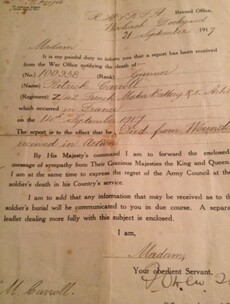 Record Office,
Dockyard
21 September 1917
Madam,
It is my painful duty to inform you that a report has been received
from the War Office notifying the death of:—
(No.) 100938 (Rank) Gunner
(Name) Patrick Carroll
(Regiment) Trench Mortar Battery
which occurred in France
on the 14th September 1917
The report is to the effect that he Died from Wounds
received in Action
By His Majesty's command I am to forward the enclosed
message of sympathy from Their Gracious Majesties the King and Queen.
I am at the same time to express the regret of the Army Council at the
soldier's death in his Country's service.
I am to add that any information that may be received as to the
soldier's burial will be communicated to you in due course. A separate
leaflet dealing more fully with this subject is enclosed.
I am,
Madam,
Your obedient Servant,
M. Carroll.